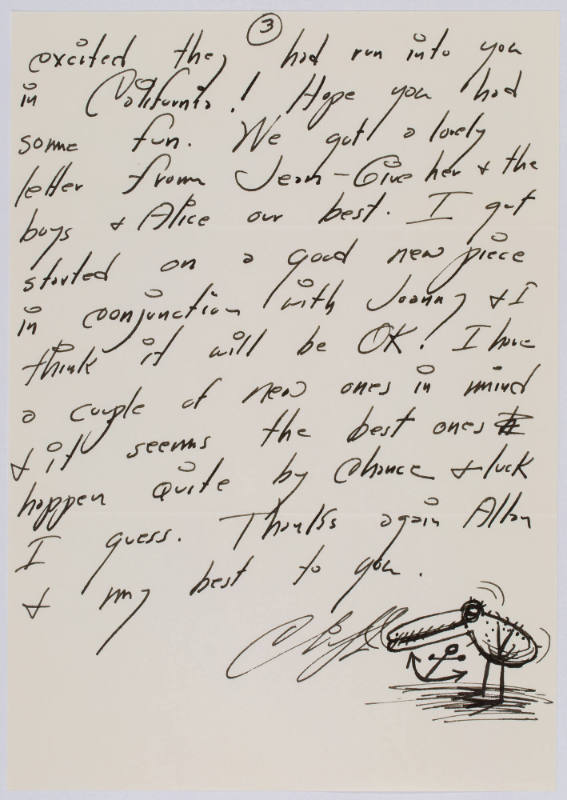 3
excited they had run into you
in California! Hope you had
some fun. We got a lovely
letter from Jean - Give her & the
boys & Alice our best. I got
started on a good new piece
in conjunction with Joanny & I
think it will be OK! I have
a couple of new ones in mind
& it seems the best ones
happen quite by chance & luck
I guess. Thanks again Allan
& my best to you.
Cliff